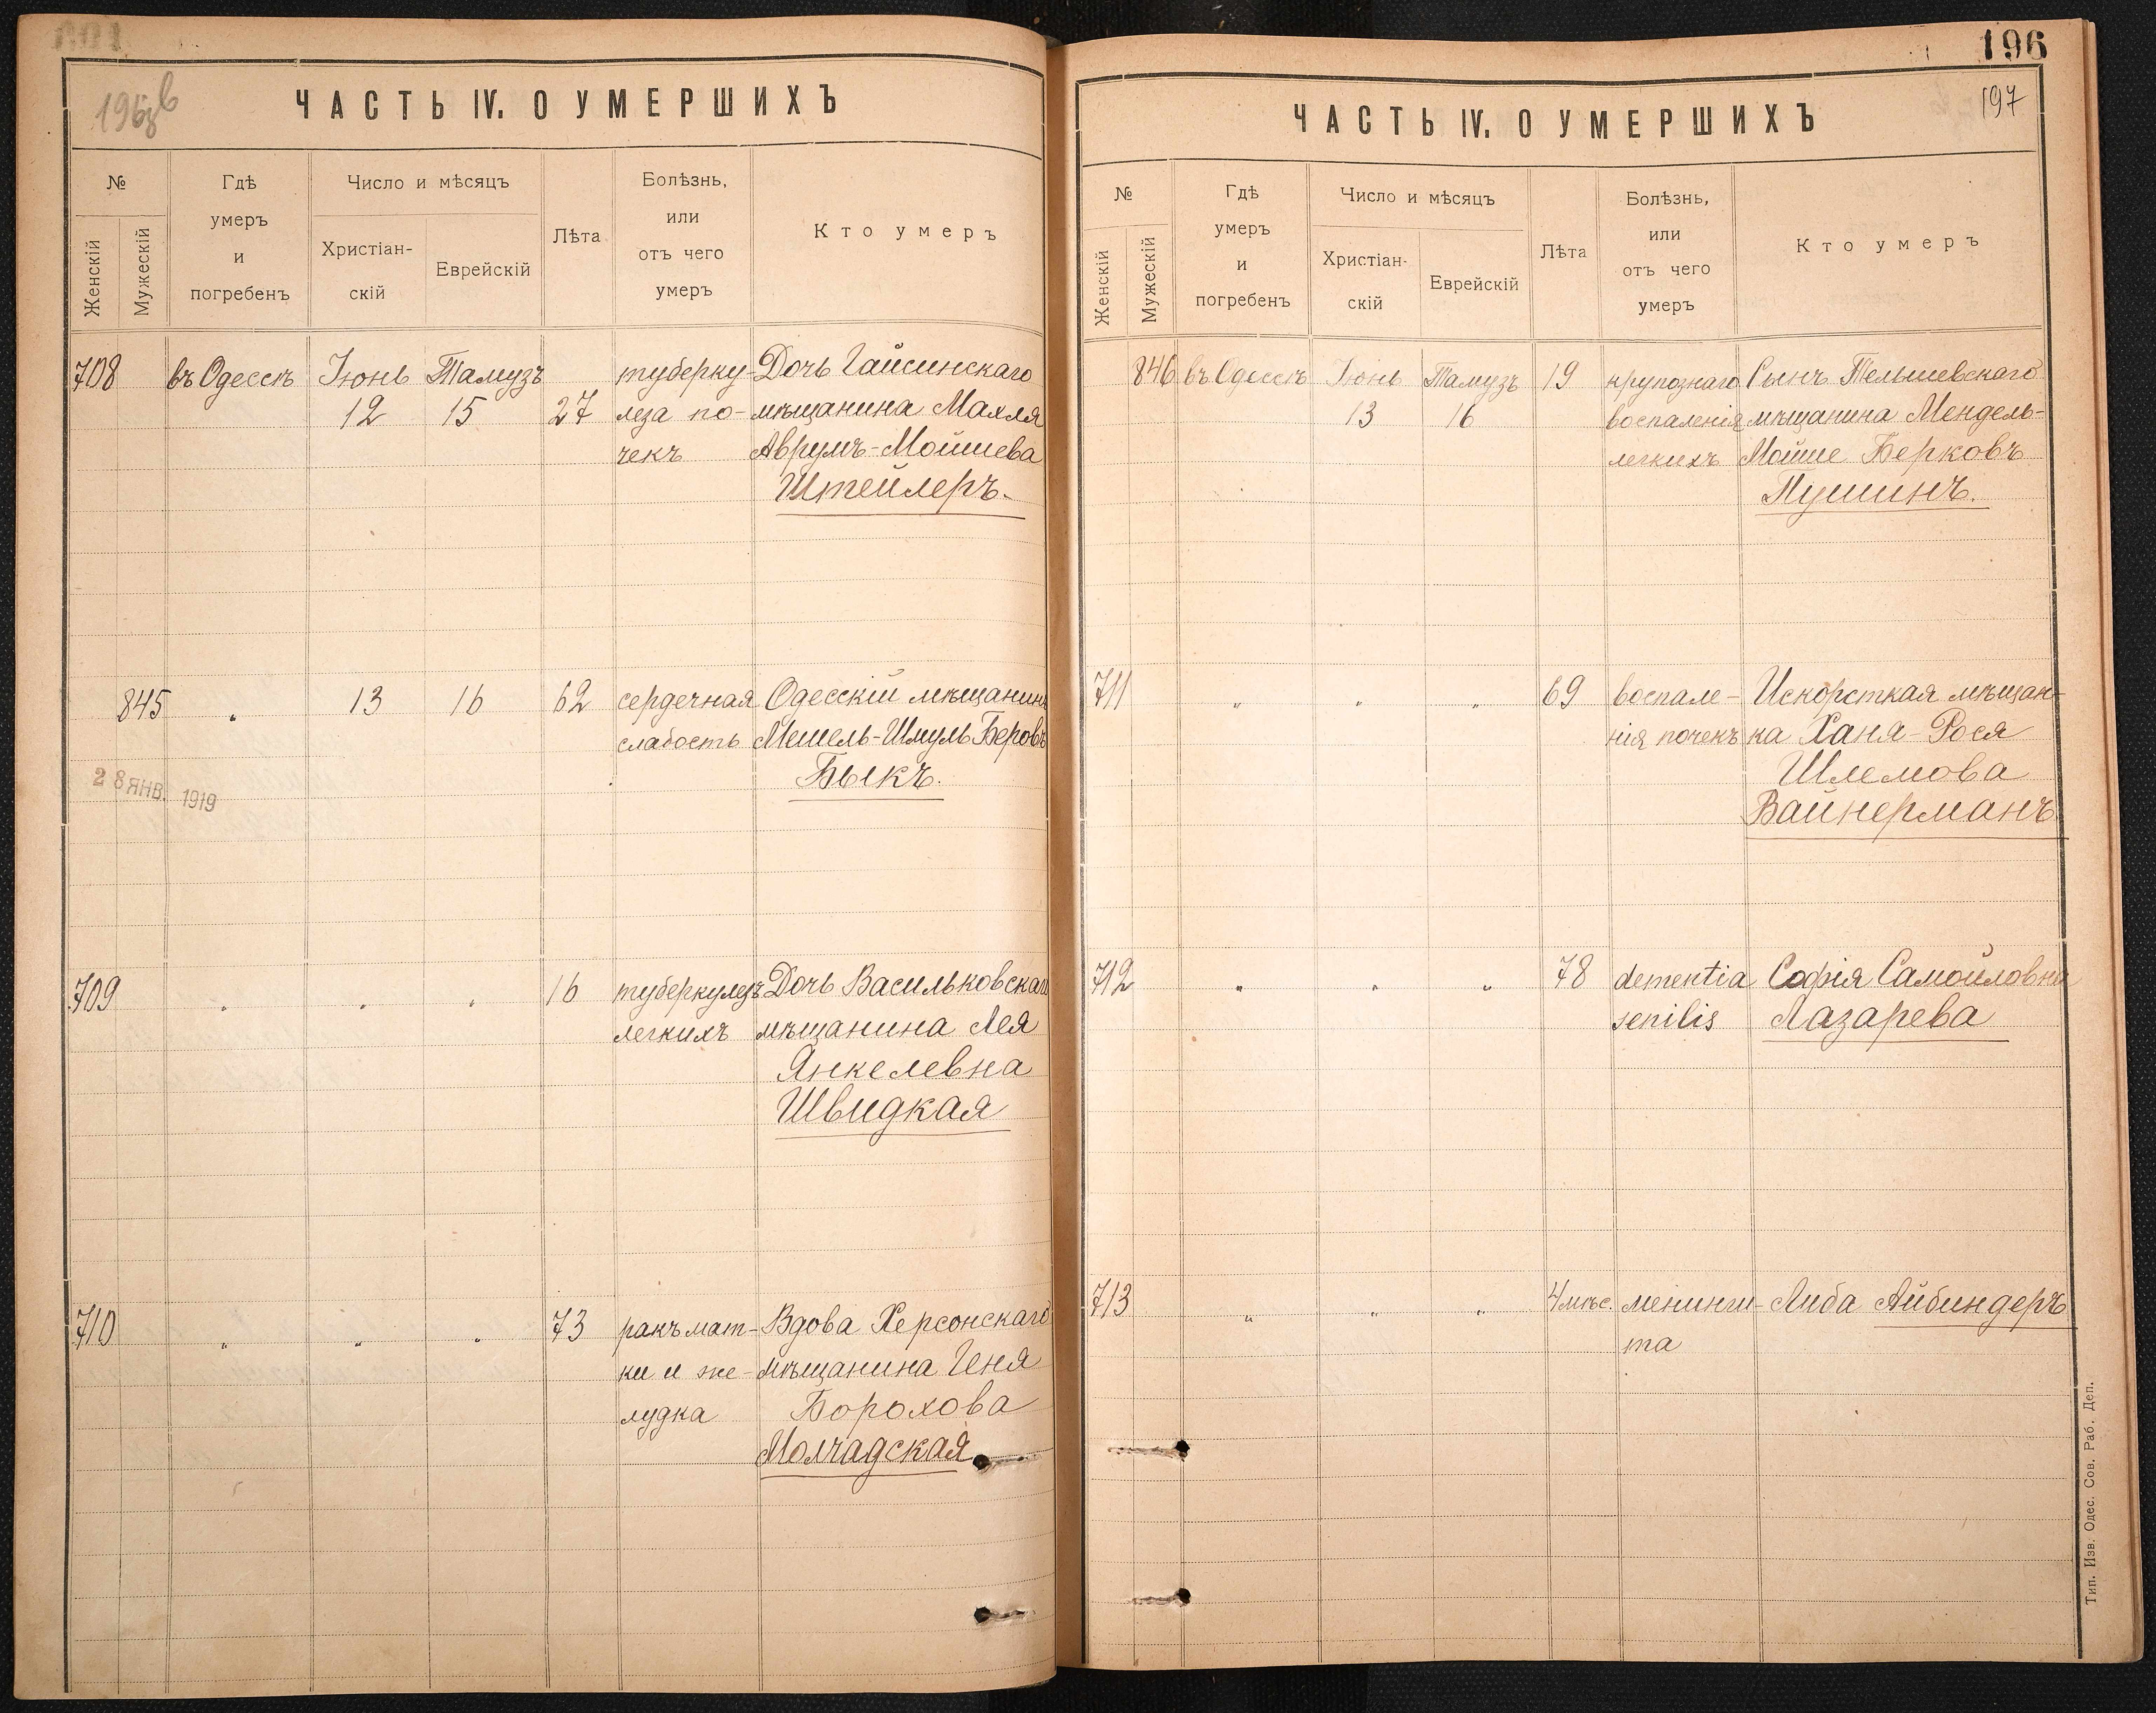 ЧАСТЬ IV. О УМЕРШИХЪ
№
Женскій
Мужескій
Гдѣ
умеръ
и
погребенъ
Число и мѣсяцъ
Христіан-
скій
Еврейскій
Лѣта
Болѣзнь,
или
отъ чего
умеръ
Кто умеръ
708 въ Одессѣ Іюнь Тамузъ туберку- Дочь Гайсинскаго
12 15 27 леза по- мѣщанина Махля
чекъ Аврумъ-Мойшева
Штейлеръ.
845 „ 13 16 62 сердечная Одесскій мѣщанинъ
слабость Мешель-Шмуль Беровъ
Быкъ.
28 ЯНВ. 1919
709 „ „ „ 16 туберкулезъ Дочь Васильковскаго
легкихъ мѣщанина Лея
Янкелевна
Швидкая
710 „ „ „ 73 ракъ мат- Вдова Херсонскаго
ки и же- мѣщанина Геня
лудка Борохова
Молчадская
196
197
ЧАСТЬ IV. О УМЕРШИХЪ
№
Женскій
Мужескій
Гдѣ
умеръ
и
погребенъ
Число и мѣсяцъ
Христіан-
скій
Еврейскій
Лѣта
Болѣзнь,
или
отъ чего
умеръ
Кто умеръ
846 въ Одессѣ Іюнь Тамузъ 19 крупознаго Сынъ Тельшевскаго
13 16 воспаленія мѣщанина Мендель-
легкихъ Мойше Берковъ
Пушинъ.
711 „ „ „ 69 воспале- Искорсткая мѣщан-
нія почекъ ка Ханя-Рося
Шлемова
Вайнерманъ
712 „ „ „ 78 dementia Софія Самойловна
senilis Лазарева
713 „ „ „ 4 мѣс. менинги- Либа Айбиндеръ
та
Тип. Изв. Одес. Сов. Раб. Деп.